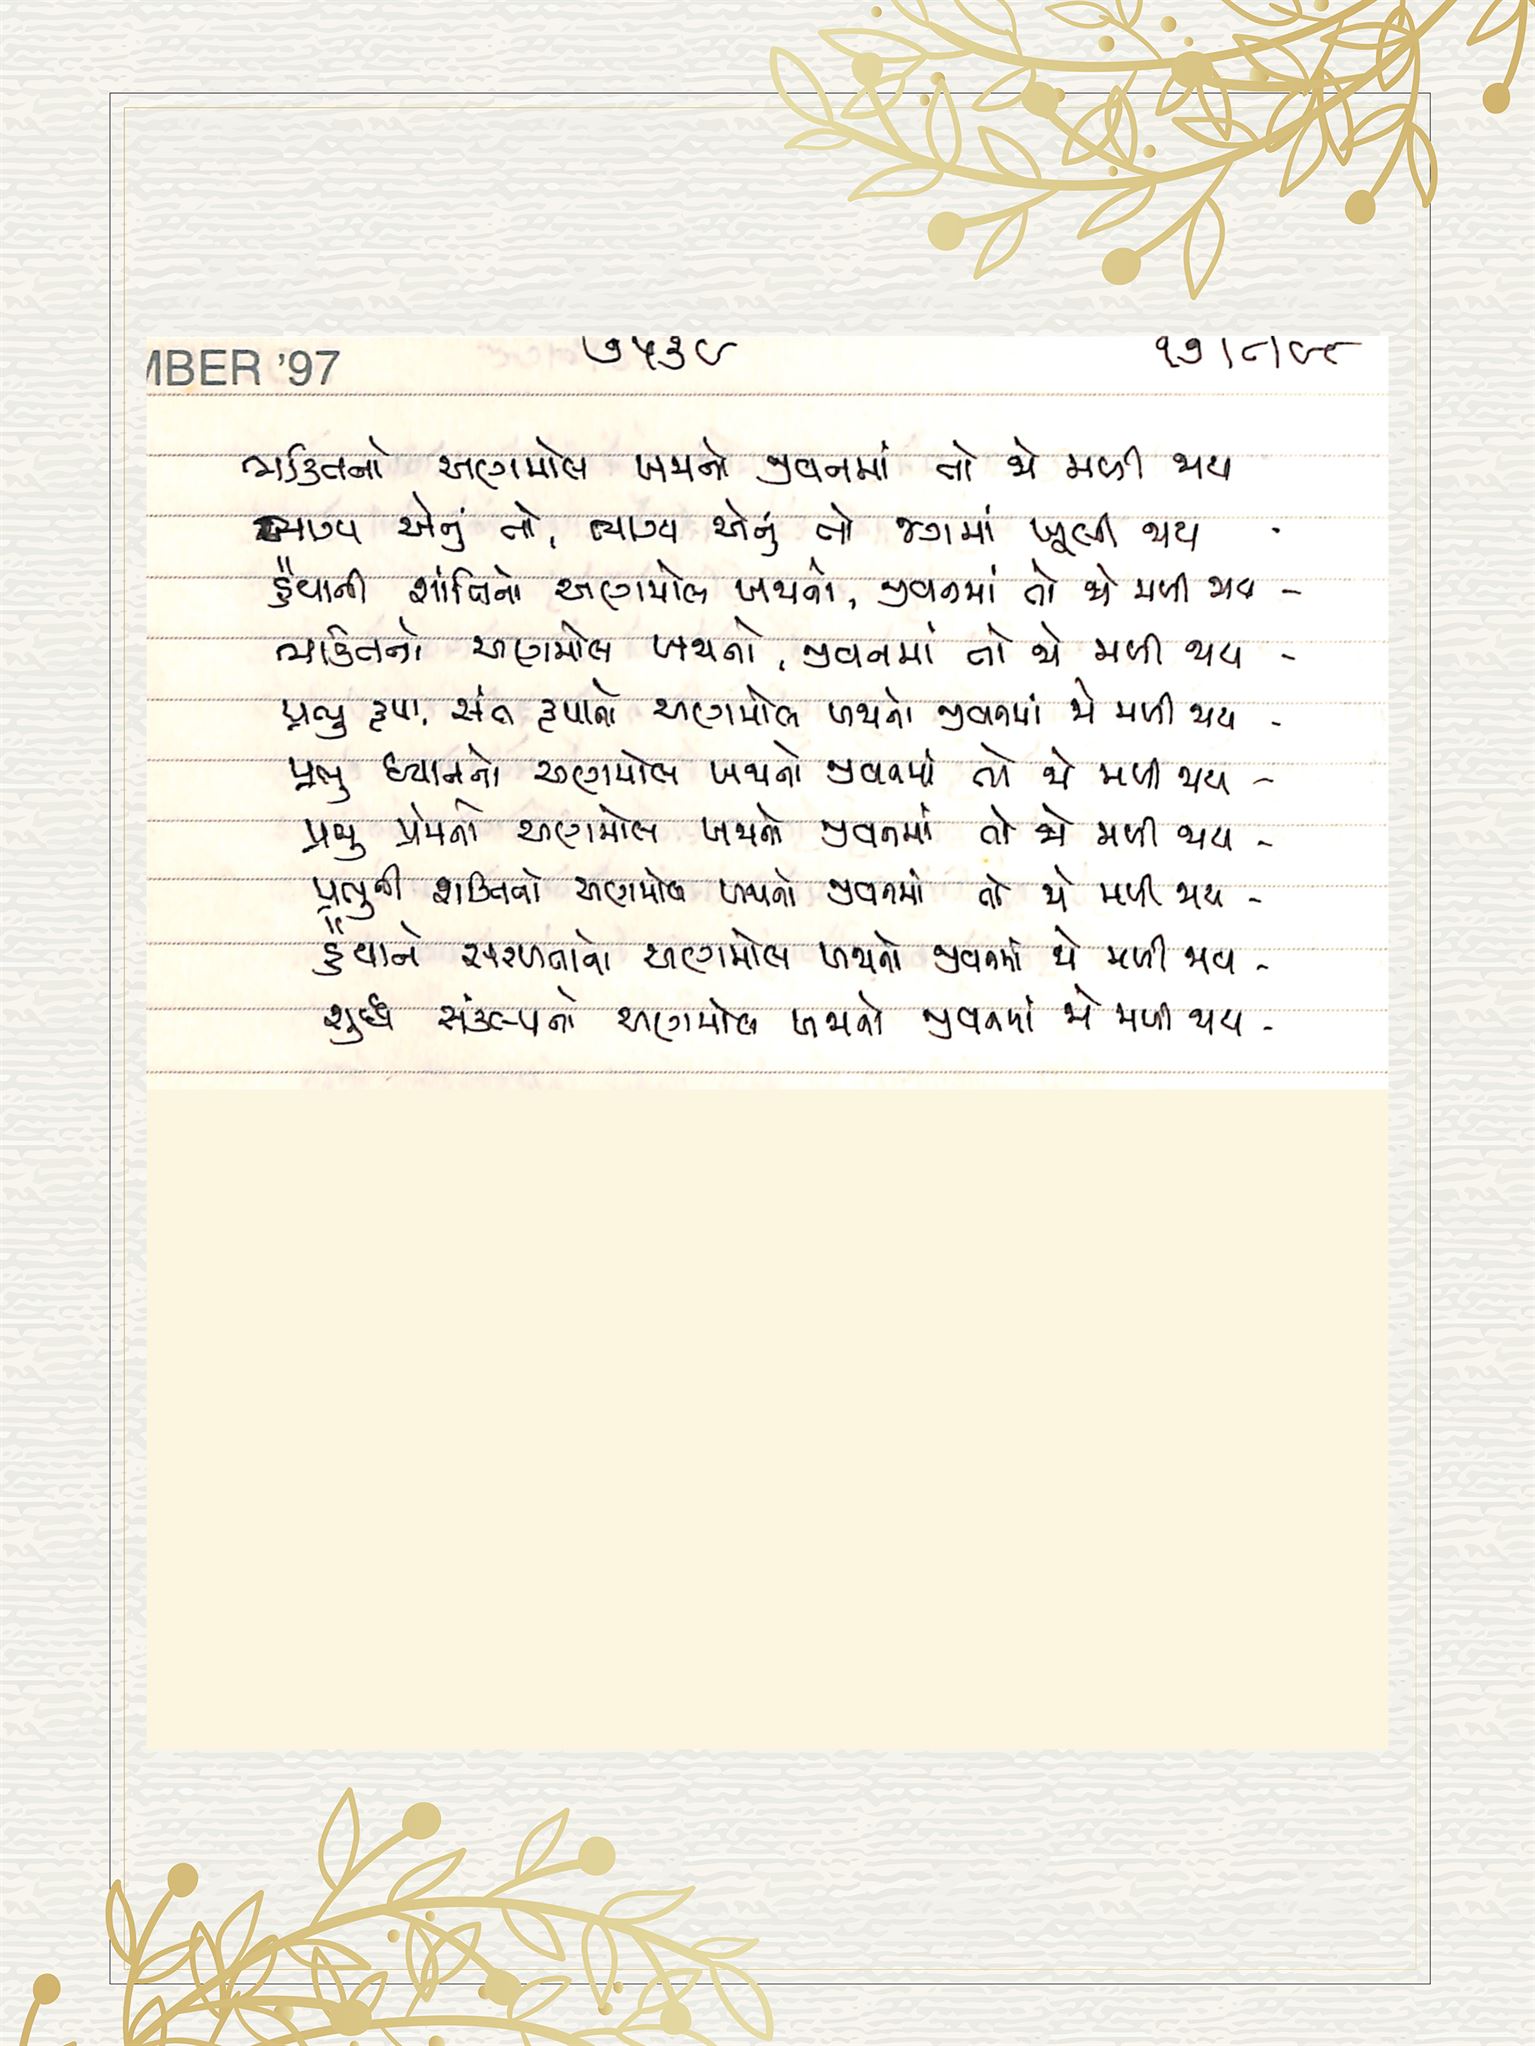 MBER '97 ૭૫૩૯ ૧૭/૮/૯૮
ભક્તિનો અણમોલ ખજાનો જીવનમાં તો જો મળી જાય
ભાગ્ય એનું તો, ભાગ્ય એનું તો જગમાં ખૂલી જાય .
હૈયાની શાંતિનો અણમોલ ખજાનો, જીવનમાં તો જો મળી જાય -
ભક્તિનો અણમોલ ખજાનો, જીવનમાં તો જો મળી જાય -
પ્રભુ કૃપા, સંત કૃપાનો અણમોલ ખજાનો જીવનમાં જો મળી જાય -
પ્રભુ ધ્યાનનો અણમોલ ખજાનો જીવનમાં તો જો મળી જાય -
પ્રભુ પ્રેમનો અણમોલ ખજાનો જીવનમાં તો જો મળી જાય -
પ્રભુની શક્તિનો અણમોલ ખજાનો જીવનમાં તો જો મળી જાય -
હૈયાને સરળતાનો અણમોલ ખજાનો જીવનમાં જો મળી જાય -
શુદ્ધ સંકલ્પનો અણમોલ ખજાનો જીવનમાં જો મળી જાય -